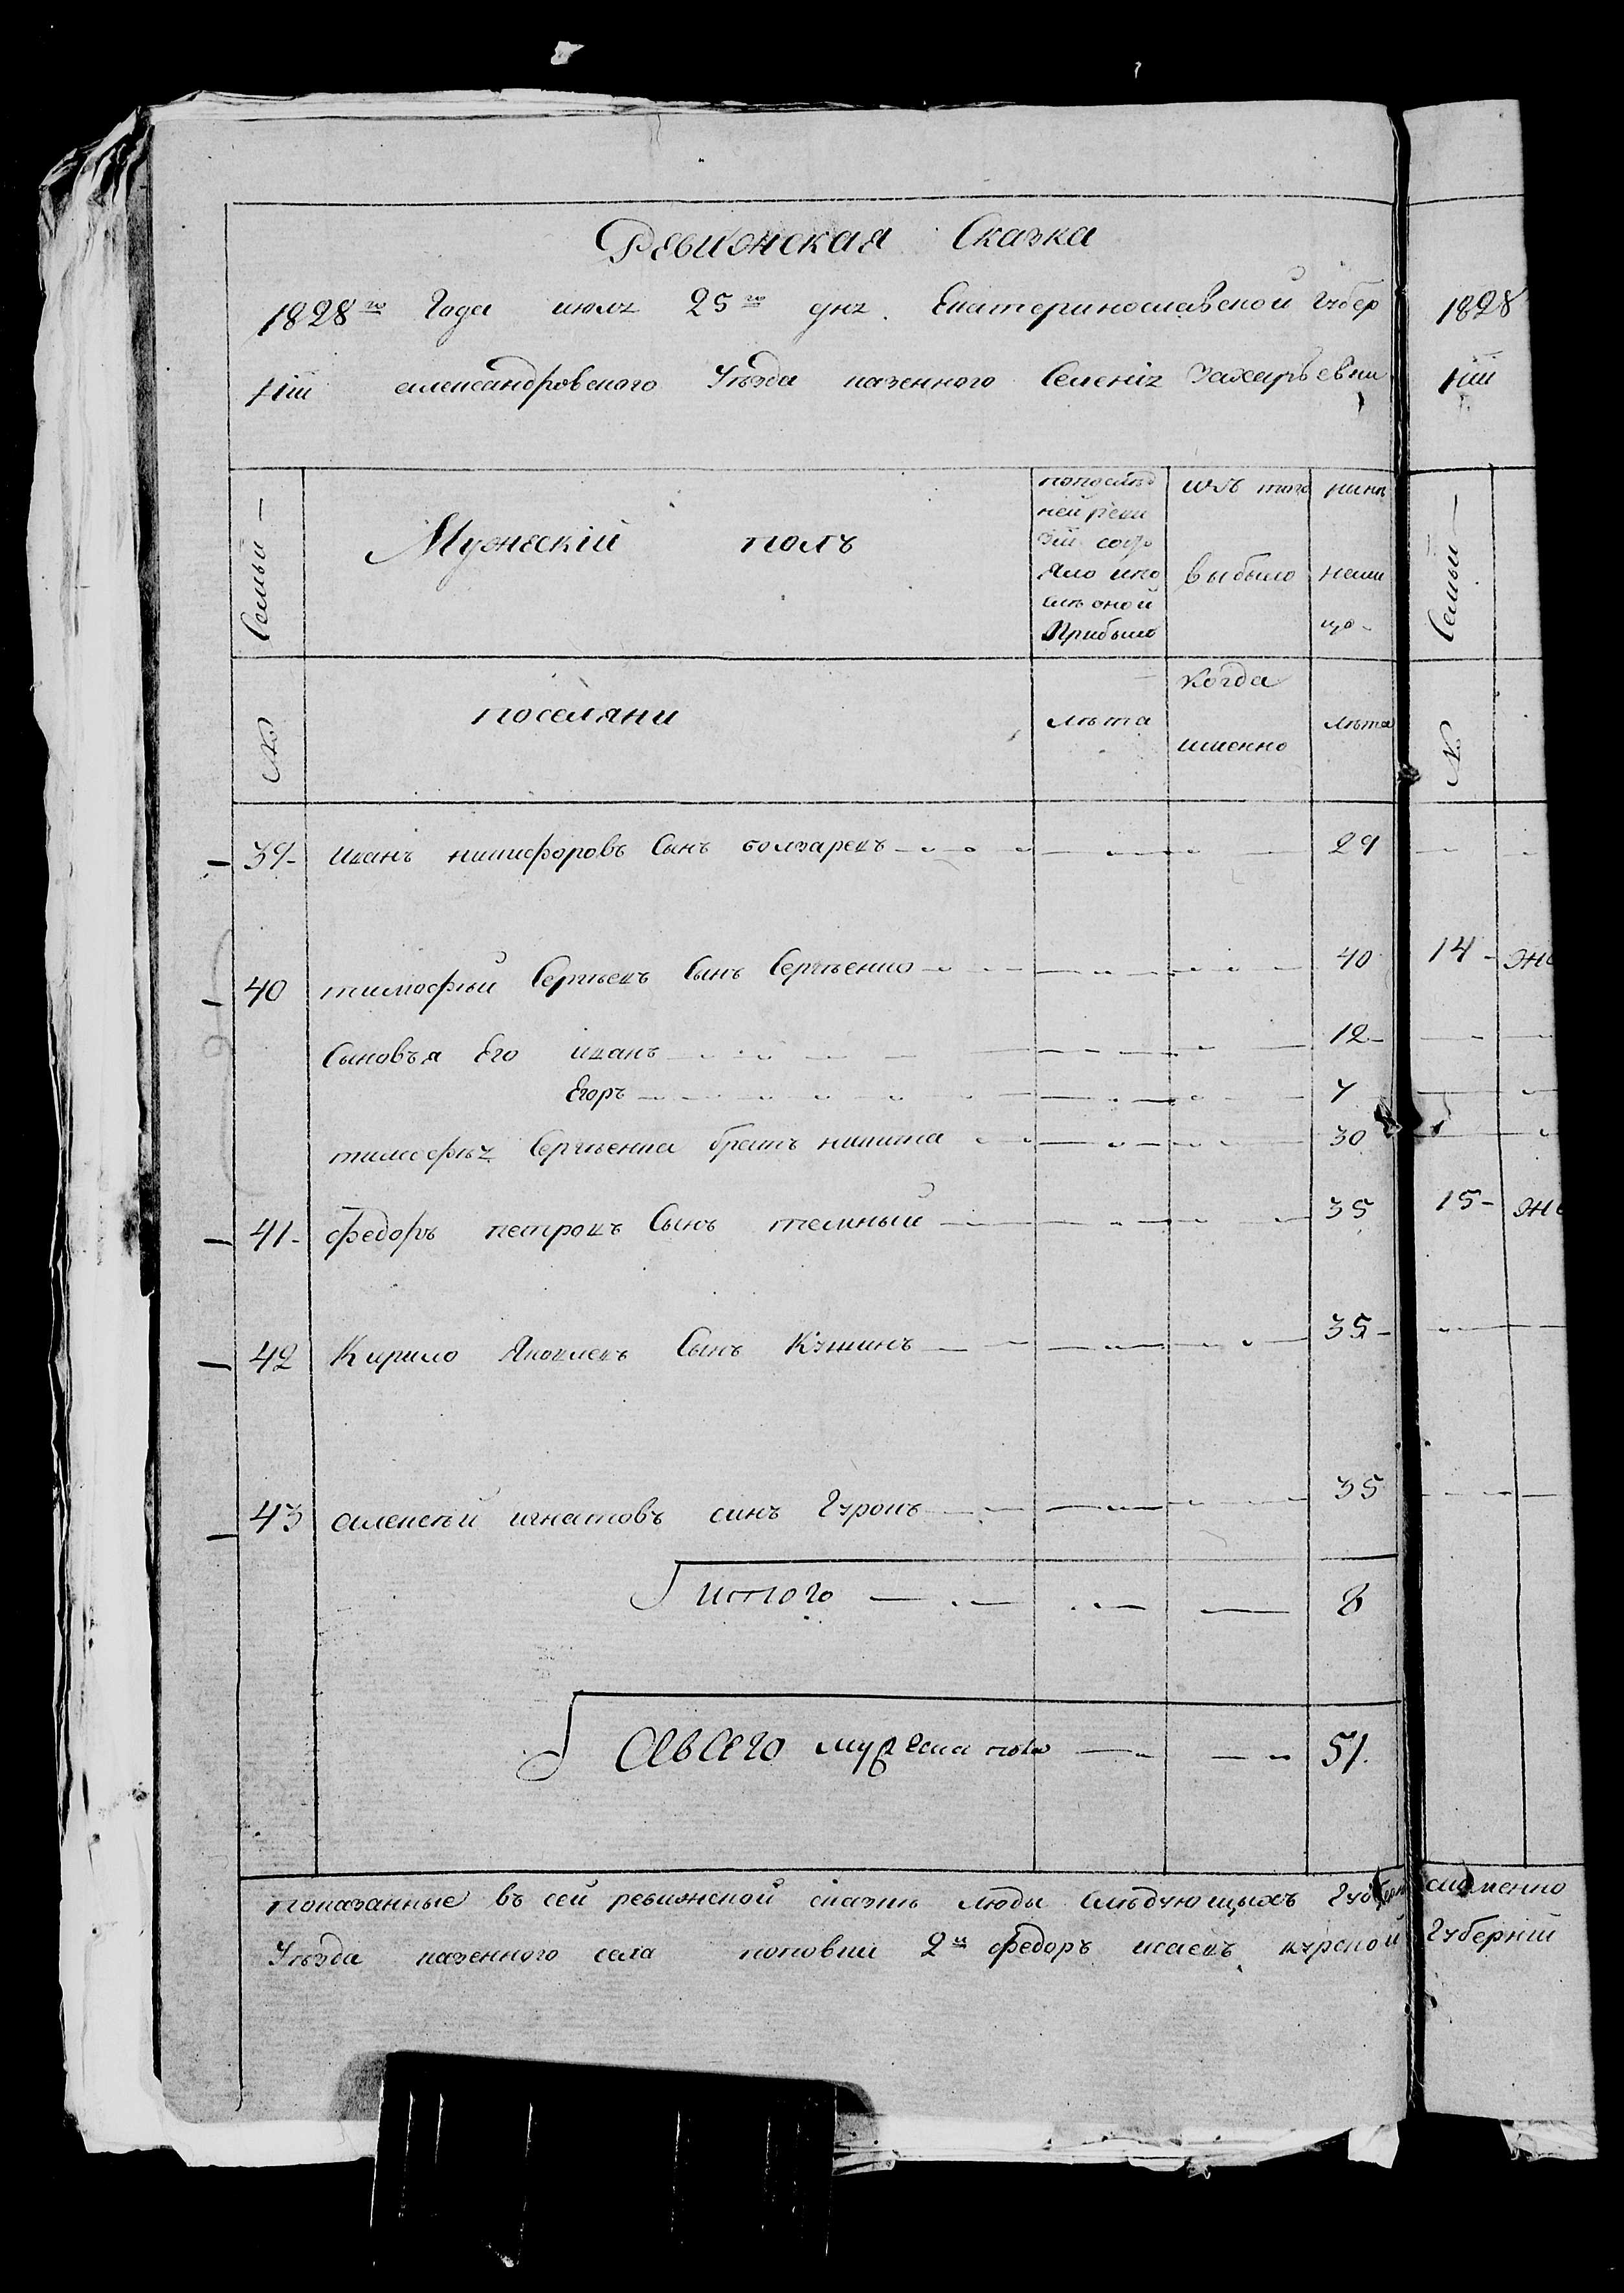 Ревизская Сказка
1828го Года июля 25го дня Екатеринославской губер
ніи александровского Уѣзда казенного Селенія Захарьевки
Семьи —
Мужескій полъ
попослѣд
ней реви
зіи состо
яло ипо
слѣ оной
Прибыло
изъ того
выбыло
нинѣ
нали
цо -
№
поселяни
лѣта
когда
именно
лѣта
39 - иванъ никифоровъ Сынъ болгаревъ 29
40 тимофѣй Сергѣевъ Сынъ Сергѣенко 40
Сыновья Его иванъ 12 -
Егоръ 7
тимофѣя Сергѣенка братъ никита 30
41 - федоръ петровъ Сынъ темный 35
42 Кирило Яковлевъ Сынъ 35 -
43 алексѣй игнатовъ синъ Гуровъ 35
итого 8
Авсего мужеска пола 51.
показанные въ сей ревизской сказкѣ люды слѣдующыхъ Губерн
Уѣзда казенного села поповки 2й федоръ исаевъ курской
1828
ніи
Семьи —
№
14 - же
15 - же
именно
Губерніи